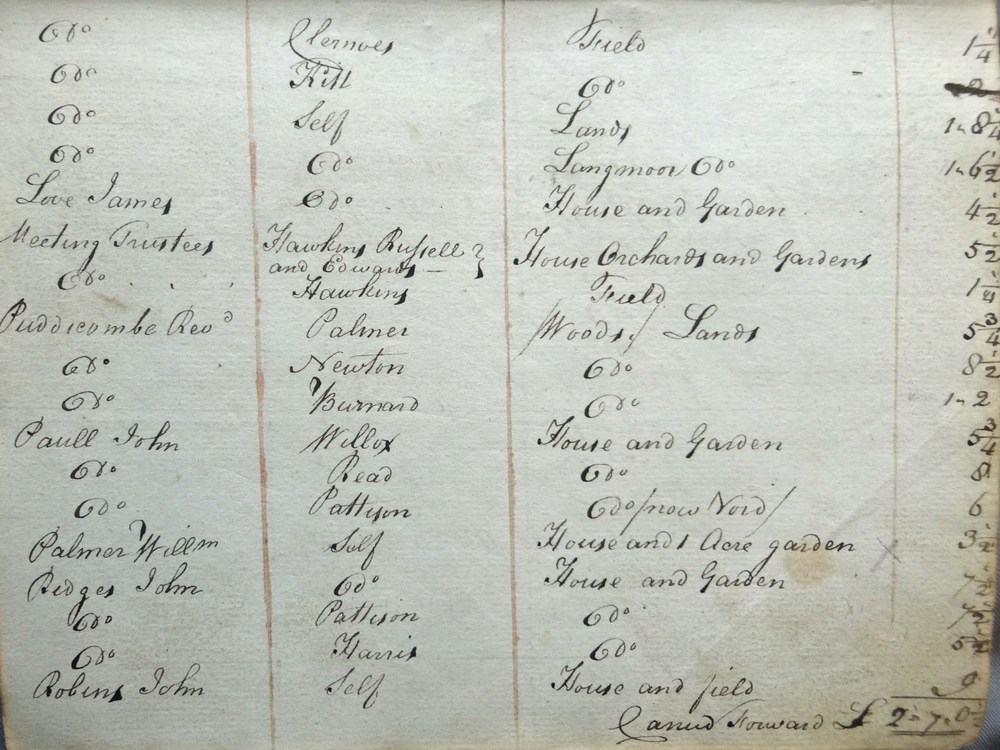 Do Clemoes Field 1 1/4
Do Hill Do 2
Do Self Lands 1" 8 1/4
Do Do Langmoor Do 1" 6 1/2
Love James Do House and Garden 4 1/2
Meeting Trustees Hawkins Russell and Edwards House Orchards and Gardens 5 1/2
Do Hawkins Field 1 1/4
Puddicombe Revd Palmer /Woods/ Lands 5 3/4
Do Newton Do 8 1/2
Do Burnard Do 1" 2
Paull John Willox House and Garden 5 3/4
Do Read Do 8
Do Pattison Do /now Void/ 6
Palmer Willm Self House and 1 Acre garden x 3 1/2
Ridges John Do House and Garden 7 1/2
Do Pattison Do 7 1/2
Do Harris Do 5 1/2
Robins John Self House and field 9
Carried Forward £ 2" 7" 0 1/2